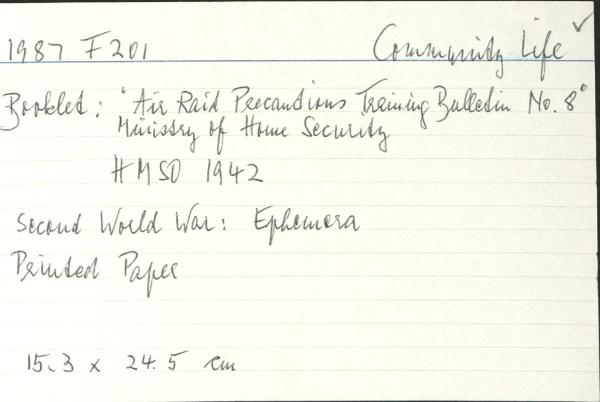 1987 F201 Community Life ✓
Booklet: "Air Raid Precautions Training Bulletin No. 8"
Ministry of Home Security
HMSO 1942
Second World War: Ephemera
Printed Paper
15.3 x 24.5 cm